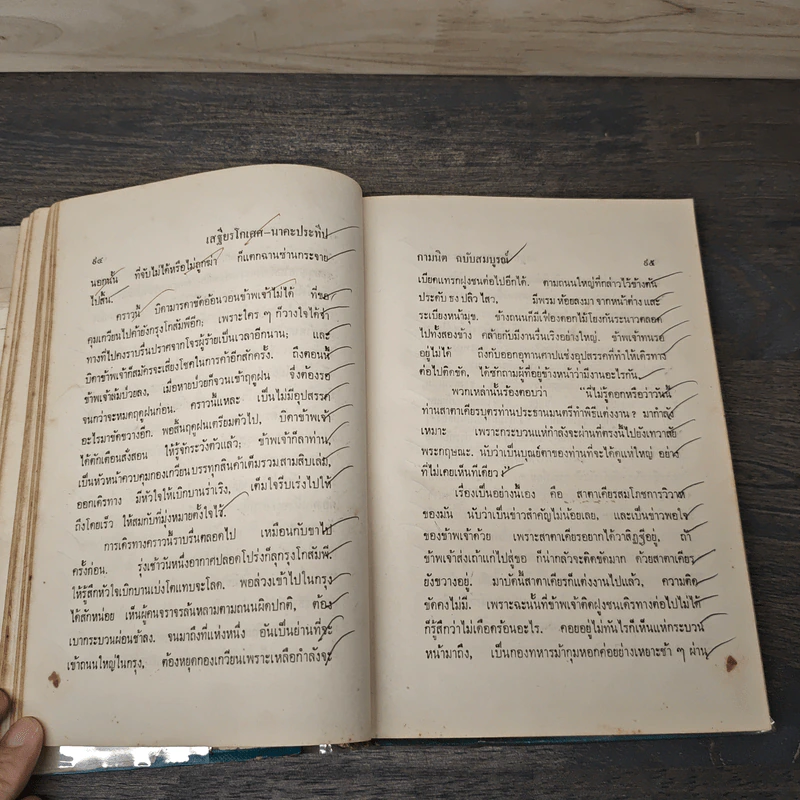 เสฐียรโกเศศ-นาคะประทีป
๙๔
นอกนั้น ที่จับไม่ได้หรือไม่ถูกฆ่า ก็แตกฉานซ่านกระจาย
ไปสิ้น.
คราวนี้ บิดามารดาขัดอ้อนวอนข้าพเจ้าไม่ได้ ที่ขอ
คุมเกวียนไปค้ายังกรุงโกสัมพีอีก; เพราะใคร ๆ ก็วางใจได้ว่า
ทางที่ไปคงราบรื่นปราศจากโจรผู้ร้ายเป็นเวลาอีกนาน; และ
บิดาข้าพเจ้าก็สมัครจะเสี่ยงโชคในการค้าอีกสักครั้ง. ถึงตอนนี้
ข้าพเจ้าล้มป่วยลง, เมื่อหายป่วยก็จวนเข้าฤดูฝน ซึ่งต้องรอ
จนกว่าจะหมดฤดูฝนก่อน. คราวนี้แหละ เป็นไม่มีอุปสรรค
อะไรมาขัดขวางอีก. พอสิ้นฤดูฝนเตรียมตัวไป, บิดาข้าพเจ้า
ได้ตักเตือนสั่งสอน ให้รู้จักระวังตัวแล้ว; ข้าพเจ้าก็ลาท่าน,
เป็นหัวหน้าควบคุมกองเกวียนบรรทุกสินค้าเต็มรวมสามสิบเล่ม,
ออกเดิรทาง มีหัวใจให้เบิกบานร่าเริง, เต็มใจรีบเร่งไปให้
ถึงโดยเร็ว ให้สมกับที่มุ่งหมายตั้งใจไว้.
การเดิรทางคราวนี้ราบรื่นตลอดไป เหมือนกับขาไป
ครั้งก่อน. รุ่งเช้าวันหนึ่งอากาศปลอดโปร่งก็ลุกรุงโกสัมพี.
ให้รู้สึกหัวใจเบิกบานเบ่งโตแทบจะโลด. พอล่วงเข้าไปในกรุง
ได้สักหน่อย เห็นผู้คนจราจรล้นหลามตามถนนผิดปกติ, ต้อง
เบากระบวนผ่อนช้าลง. จนมาถึงที่แห่งหนึ่ง อันเป็นย่านที่จะ
เข้าถนนใหญ่ในกรุง, ต้องหยุดกองเกวียนเพราะเหลือกำลังจะ
กามนิต ฉบับสมบูรณ์
๙๕
เบียดแทรกฝูงชนต่อไปอีกได้. ตามถนนใหญ่ที่กล่าวไว้ข้างต้น
ประดับ ธง ปลิว ไสว, มีพรม ห้อยลงมา จากหน้าต่าง และ
ระเบียงหน้ามุข. ข้างถนนก็มีเฟื่องดอกไม้โยงกันระนาวตลอด
ไปทั้งสองข้าง คล้ายกับมีงานรื่นเริงอย่างใหญ่. ข้าพเจ้าทนรอ
อยู่ไม่ได้ ถึงกับออกอุทานคาปแช่งอุปสรรคที่ทำให้เดิรทาง
ต่อไปติดขัด, ได้ซักถามผู้ที่อยู่ข้างหน้าว่ามีงานอะไรกัน.
พวกเหล่านั้นร้องตอบว่า “นี่ไม่รู้ดอกหรือว่าวันนี้
ท่านสาตาเคียรบุตรท่านประธานมนตรีทำพิธีแต่งงาน? มากำลัง
เหมาะ เพราะกระบวนแห่กำลังจะผ่านที่ตรงนี้ไปยังเทวาลัย
พระกฤษณะ. นับว่าเป็นบุญยิตาของท่านที่จะได้ดูแห่ใหญ่ อย่าง
ที่ไม่เคยเห็นทีเดียว.”
เรื่องเป็นอย่างนี้เอง คือ สาตาเคียรสมโภชการวิวาห
ของมัน นับว่าเป็นข่าวสำคัญไม่น้อยเลย, และเป็นข่าวพอใจ
ของข้าพเจ้าด้วย เพราะสาตาเคียรอยากได้วาสิฏฐีอยู่, ถ้า
ข้าพเจ้าส่งเถ้าแก่ไปสู่ขอ ก็น่ากลัวจะติดขัดมาก ด้วยสาตาเคียร
ยังขวางอยู่. มาบัดนี้สาตาเคียรก็แต่งงานไปแล้ว, ความติด
ขัดคงไม่มี. เพราะฉะนั้นที่ข้าพเจ้าติดฝูงชนเดิรทางต่อไปไม่ได้
ก็รู้สึกว่าไม่เดือดร้อนอะไร. คอยอยู่ไม่ทันไรก็เห็นแห่กระบวน
หน้ามาถึง, เป็นกองทหารม้ากุมหอกค่อยอย่างเหยาะช้า ๆ ผ่าน